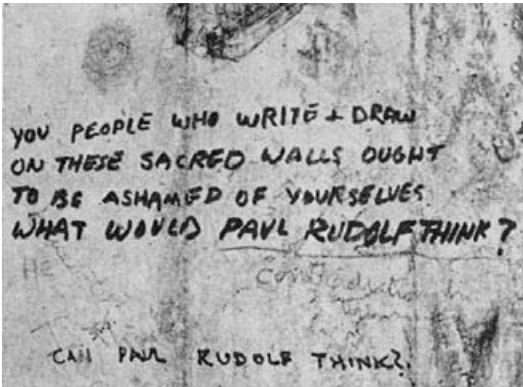 YOU PEOPLE WHO WRITE + DRAW
ON THESE SACRED WALLS OUGHT
TO BE ASHAMED OF YOURSELVES
WHAT WOULD PAUL RUDOLF THINK?
HE
CAN PAUL RUDOLF THINK?